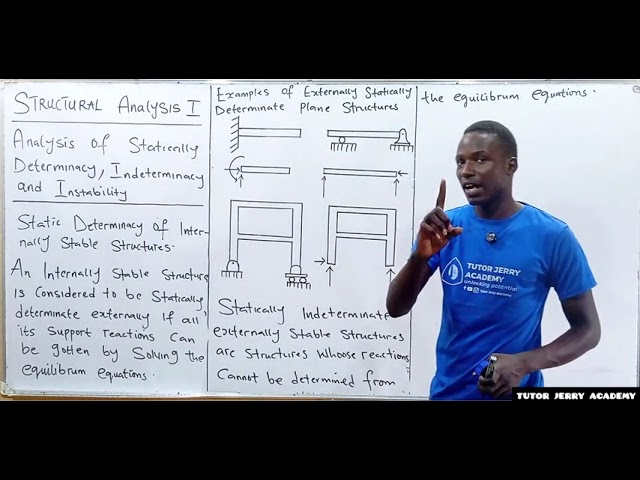 STRUCTURAL Analysis I
Analysis of Statically
Determinacy, Indeterminacy
and Instability
Static Determinacy of Inter-
nally Stable Structures.
An Internally Stable Structure
is Considered to be Statically
determinate externally If all
its Support reactions Can
be gotten by Solving the
equilibrum equations.
Examples of Externally Statically
Determinate Plane Structures
Statically Indeterminate
externally Stable Structures
are Structures Whoose reactions
Cannot be determined from
the equilibrum equations.
TUTOR JERRY
ACADEMY
unlocking potential
TUTOR JERRY ACADEMY